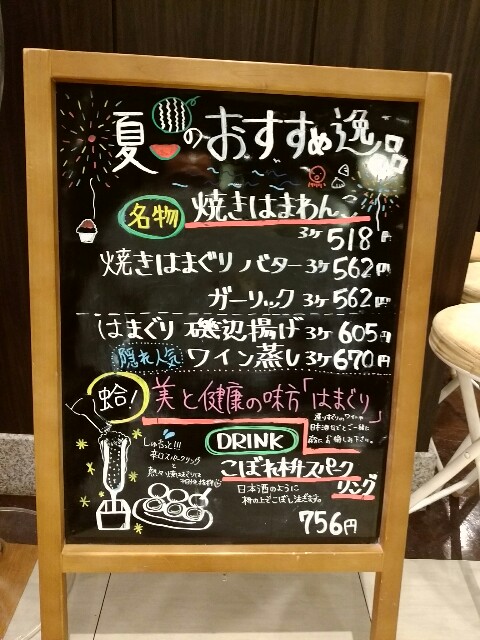 夏のおすすめ逸品
名物 焼きはまわんこ
3ケ 518円
焼きはまぐり バター 3ケ 562円
ガーリック 3ケ 562円
はまぐり 磯辺揚げ 3ケ 605円
隠れ人気 ワイン蒸し 3ケ 670円
蛤! 美と健康の味方「はまぐり」
選りすぐりのワインや
日本酒などとご一緒に
お愉しみ下さい。
DRINK
こぼれ枡スパーク
リング
しゅるっと!!!
辛口スパークリング
と
日本酒のように
枡の上でこぼし注ぎます。
756円